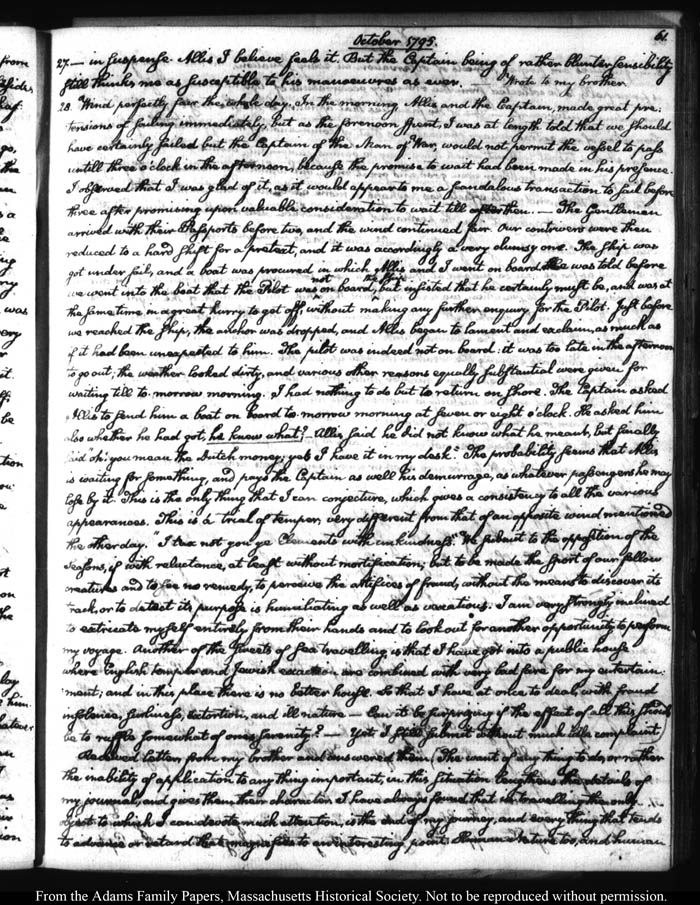 October 1795.
61
27.— in suspense. Allis I believe feels it. But the Captain being of rather blunter sensibility
still thinks me as susceptible to his manoeuvres as ever. Wrote to my brother.
28. Wind perfectly fair the whole day. In the morning Allis and the Captain, made great pre-
tensions of sailing immediately, but as the forenoon spent, I was at length told that we should
have certainly sailed but the Captain of the Man of War, would not permit the vessel to pass
untill three o'clock in the afternoon, because the promise to wait had been made in his presence.
I observed that I was glad of it, as it would appear to me a scandalous transaction to sail before
three after promising upon valuable consideration to wait till then. — The Gentlemen
arrived with their Passports before two, and the wind continued fair. Our contrivers were then
reduced to a hard shift for a pretext, and it was accordingly a very clumsy one. The ship was
got under sail, and a boat was procured in which Allis and I went on board. He was told before
we went into the boat that the Pilot was not on board, but insisted that he certainly must be, and was at
the same time in a great hurry to get off, without making any further enquiry for the Pilot. Just before
we reached the ship, the anchor was dropped, and Allis began to lament and exclaim, as much as
if it had been unexpected to him. The pilot was indeed not on board: it was too late in the afternoon
to go out; the weather looked dirty, and various other reasons equally substantial were given for
waiting till to-morrow morning. I had nothing to do but to return on shore. The Captain asked
Allis to send him a boat on board to-morrow morning at seven or eight o'clock. He asked him
also whether he had got, he knew what? Allis said he did not know what he meant, but finally
said "oh! you mean the Dutch money; yes I have it in my desk." The probability seems that Allis
is waiting for something, and pays the Captain as well his demurrage, as whatever passengers he may
lose by it. This is the only thing that I can conjecture, which gives a consistency to all the various
appearances. This is a trial of temper, very different from that of an opposite wind mentioned
the other day. "I tax not you ye Elements with unkindness." We submit to the opposition of the
seasons, if with reluctance, at least without mortification; but to be made the sport of our fellow
creatures and to see no remedy, to perceive the artifices of fraud, without the means to discover its
track, or to detect its purpose is humiliating as well as vexatious. I am very strongly inclined
to extricate myself entirely from their hands and to look out for another opportunity to perform
my voyage. Another of the sweets of sea travelling is that I have got into a public house
where English temper and Jewish exaction are combined with very bad fare for my entertain-
ment; and in this place there is no better house. So that I have at once to deal, with fraud
insolence, surliness, extortion, and ill nature — Can it be surprizing if the effect of all this should
be to ruffle somewhat of ones serenity? — Yet I still submit without much idle complaint.
Received letters from my brother and answered them. The want of any thing to do, or rather
the inability of application to any thing important, in this situation lengthens the details of
my journal, and gives them their character. I have always found that in travelling the only
object to which I can devote much attention, is the end of my journey, and every thing that tends
to advance or retard that magnifies to an interesting point. Human Nature too, and human
From the Adams Family Papers, Massachusetts Historical Society. Not to be reproduced without permission.